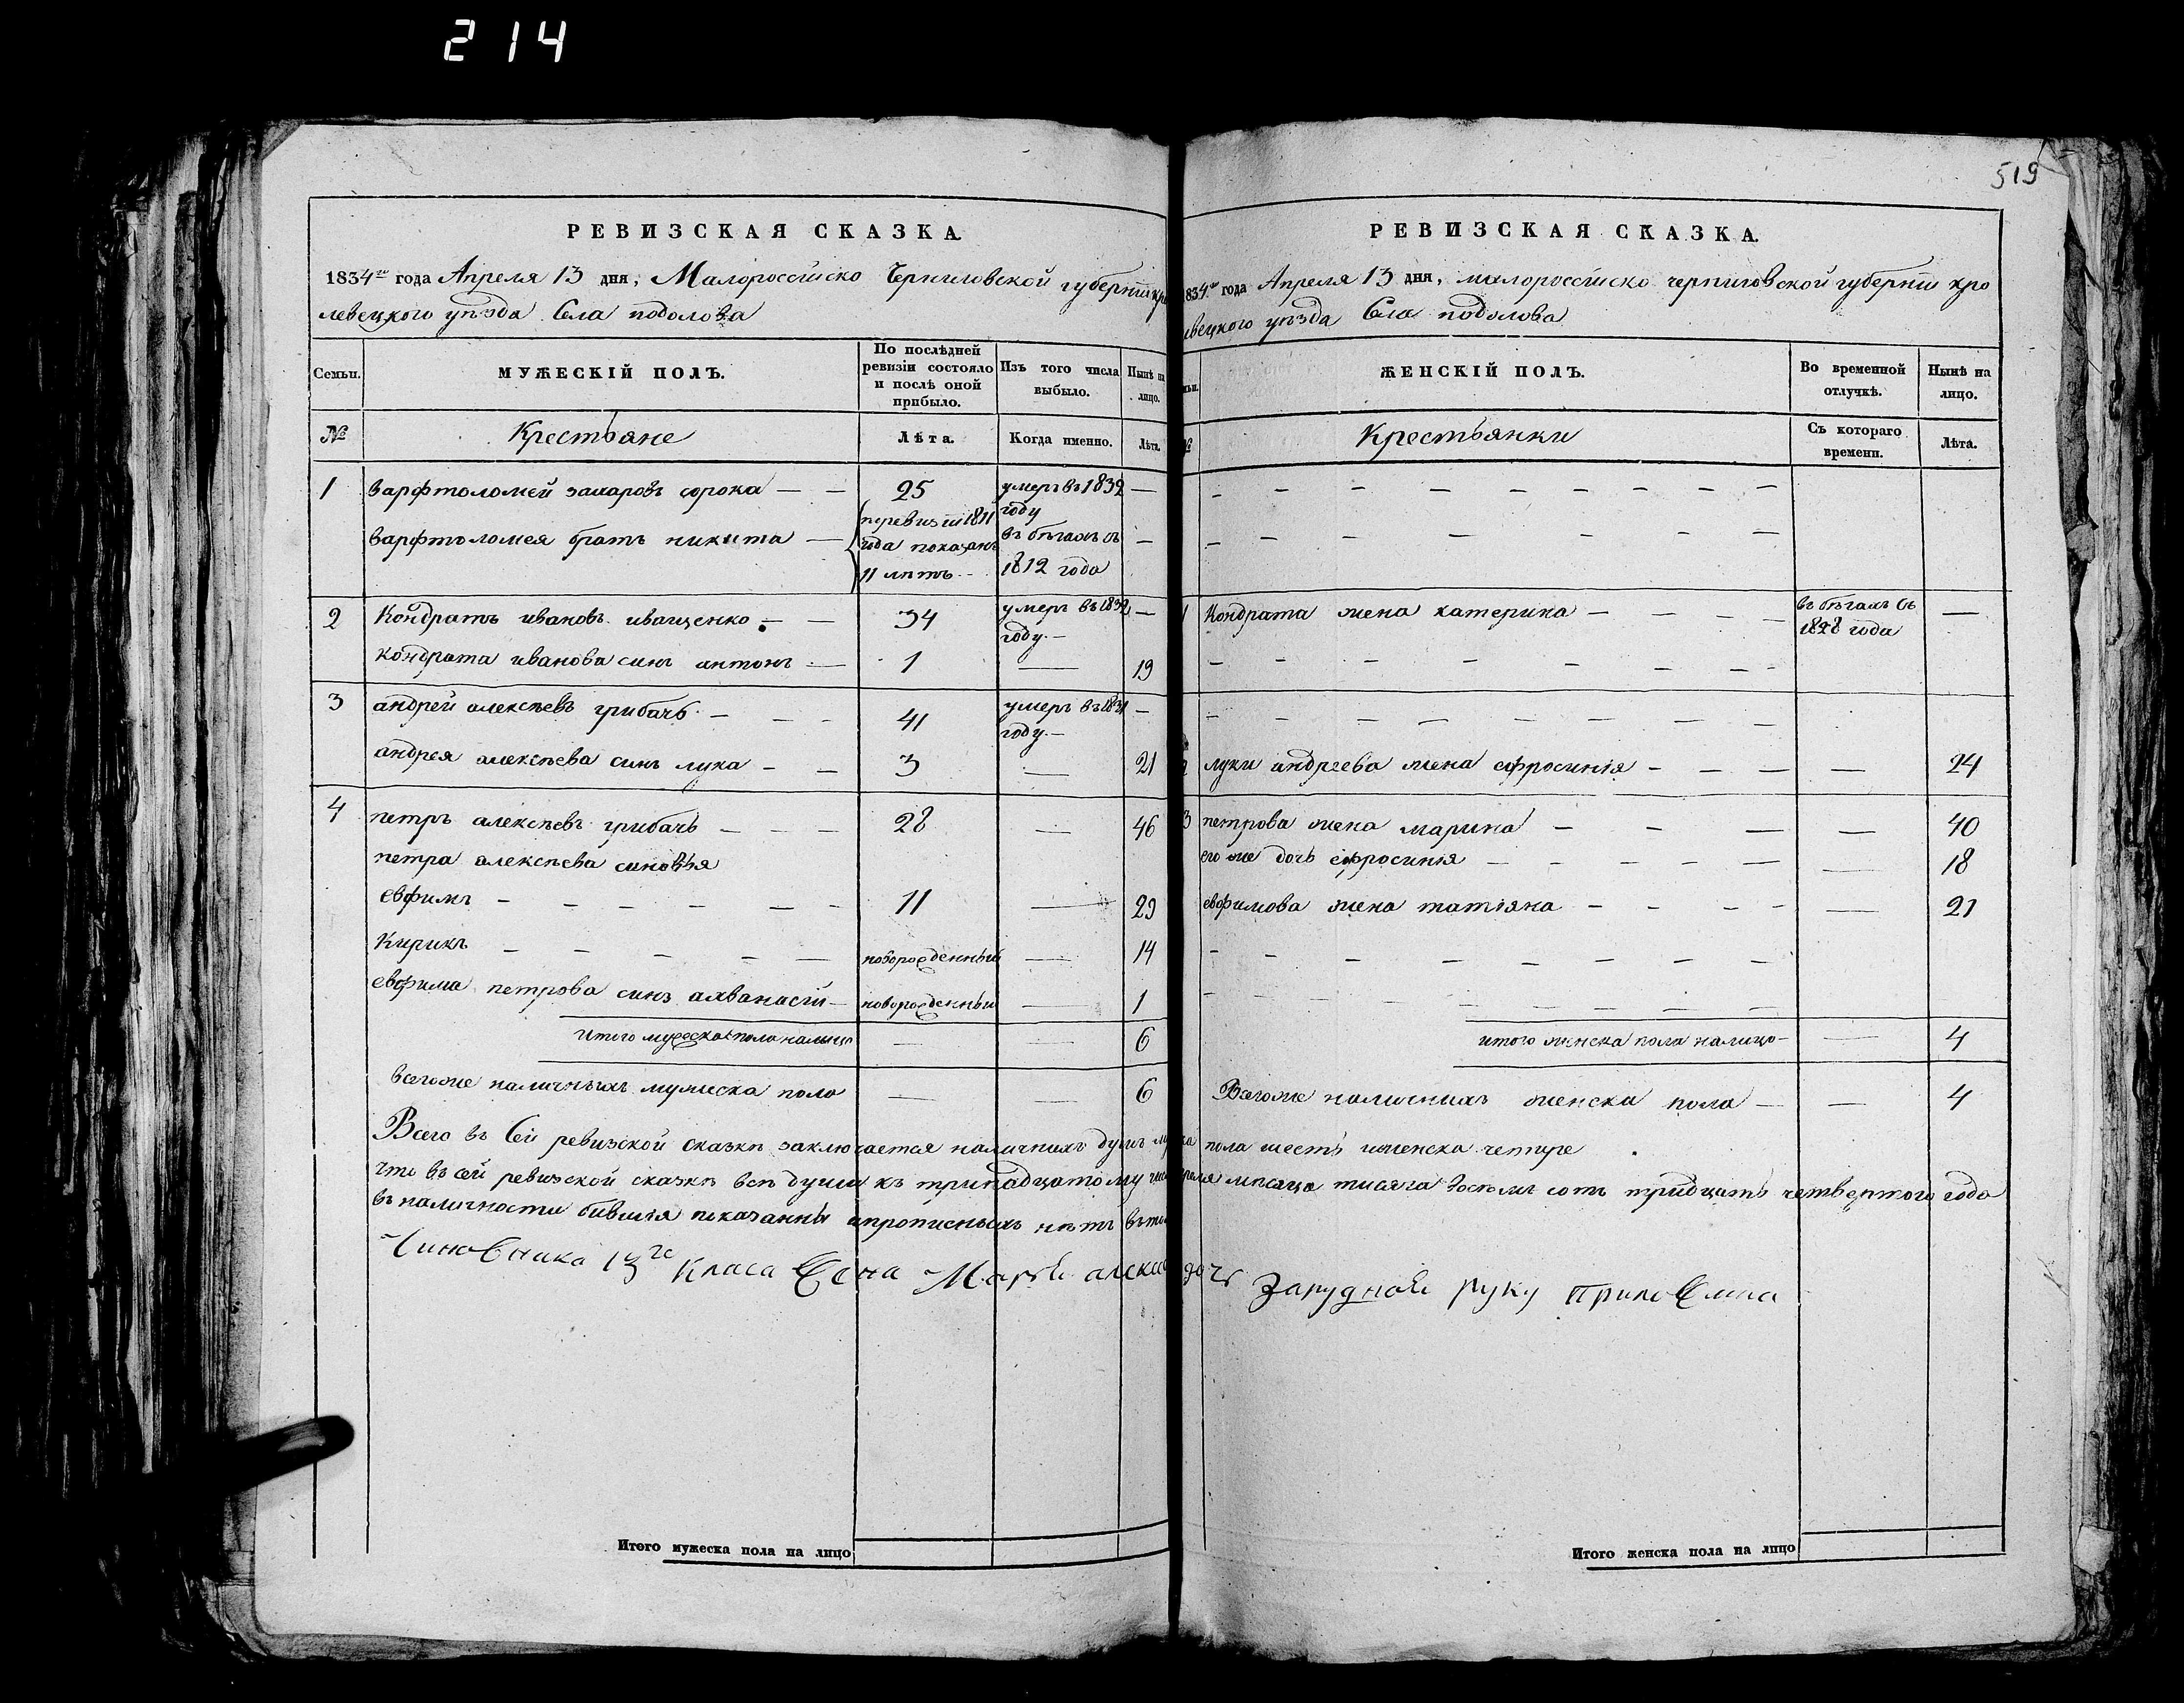 214
519
РЕВИЗСКАЯ СКАЗКА.
1834го года Апреля 13 дня, Малороссійско Черниговской губерніи кро
левецкого уѣзда Села подолова
Семьи.
МУЖЕСКІЙ ПОЛЪ.
По послѣдней ревизіи состояло и послѣ оной прибыло.
Изъ того числа выбыло.
Нынѣ на лицо.
№
Крестьяне
Лѣта.
Когда именно.
Лѣта.
1 варфтоломей захаровъ сорока — — 25 умеръ въ 1832 году —
варфтоломея братъ никита — поревизіи 1811 года показанъ 11 лѣтъ — въ бѣгахъ съ 1812 года —
2 Кондратъ ивановъ иващенко — — 34 умеръ въ 1832 году — —
кондрата иванова синъ антонъ — 1 — 19
3 андрей алексѣевъ грибачъ — — — 41 умеръ въ 1831 году — —
андрея алексѣева синъ лука — — 3 — 21
4 петръ алексѣевъ грибачъ — — — 28 — 46
петра алексѣева синовья
евфимъ — — — — — — 11 — 29
Кирикъ — — — — — новорожденный — 14
евфима петрова синъ ахванасій — новорожденный — 1
Итого мужеска пола налицо — — 6
всегоже наличныхъ мужеска пола — — 6
РЕВИЗСКАЯ СКАЗКА.
834го года Апреля 13 дня, малороссійско черниговской губерніи кро
евецкого уѣзда Села подолова
ьи.
ЖЕНСКІЙ ПОЛЪ.
Во временной отлучкѣ.
Нынѣ на лицо.
№
Крестьянки
Съ котораго времени.
Лѣта.
— — — — — — — — —
— — — — — — —
1 Кондрата жена катерина — — — — въ бѣгахъ съ 1828 года —
— — — — — — —
— — — — — — — —
2 луки андреева жена ефросинія — — — — — 24
3 петрова жена марина — — — — — 40
его же дочь ефросинія — — — — — — 18
евфимова жена татіяна — — — — — 21
— — — — — — — —
— — — — — — — —
итого женска пола налицо — — 4
Всегоже наличнихъ женска пола — — 4
Всего въ Сей ревизской сказкѣ заключается наличнихъ душъ му ка пола шесть иженска четире
что въ сей ревизской сказкѣ всѣ души къ тринадцатому числу преля мѣсяца тисяча восемъ сотъ тридцать четвертого года
въ наличности бившія показанны ипрописныхъ нѣтъ вътом
Чиновника 13го Класа Жена Марья алекса дочь Зарудная руку приложила
Итого мужеска пола на лицо
Итого женска пола на лицо